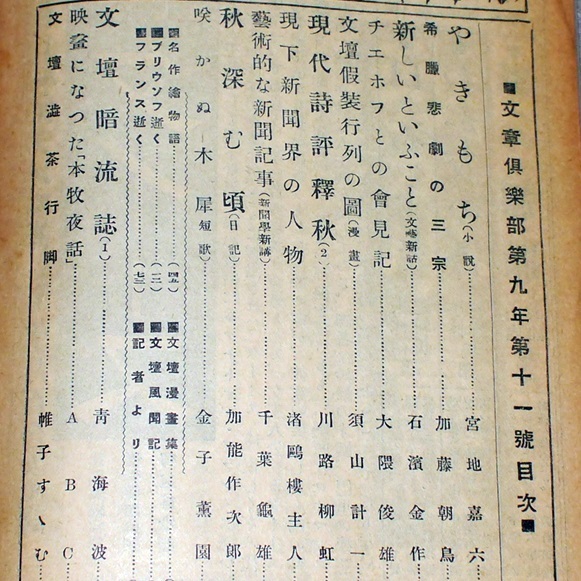 ■文章俱樂部第九年第十一號目次■
やきもち(小說)宮地嘉六
希臘悲劇の三宗加藤朝鳥
新しいといふこと(文藝新話)石濱金作
チエホフとの會見記大隈俊雄
文壇假裝行列の圖(漫畫)須山計一
現代詩評釋秋(2)川路柳虹
現下新聞界の人物渚鷗樓主人
藝術的な新聞記事(新聞學新講)千葉龜雄
秋深む頃(日記)加能作次郎
咲かぬ木犀(短歌)金子薰園
■名作繪物語(四五)■文壇漫畫集
■ブリウソフ逝く(二)■文壇風聞記
■フランス逝く(七三)■記者より
文壇暗流誌(1)靑海波
映畫になつた「本牧夜話」ABC
文壇澁茶行脚帷子すゝむ